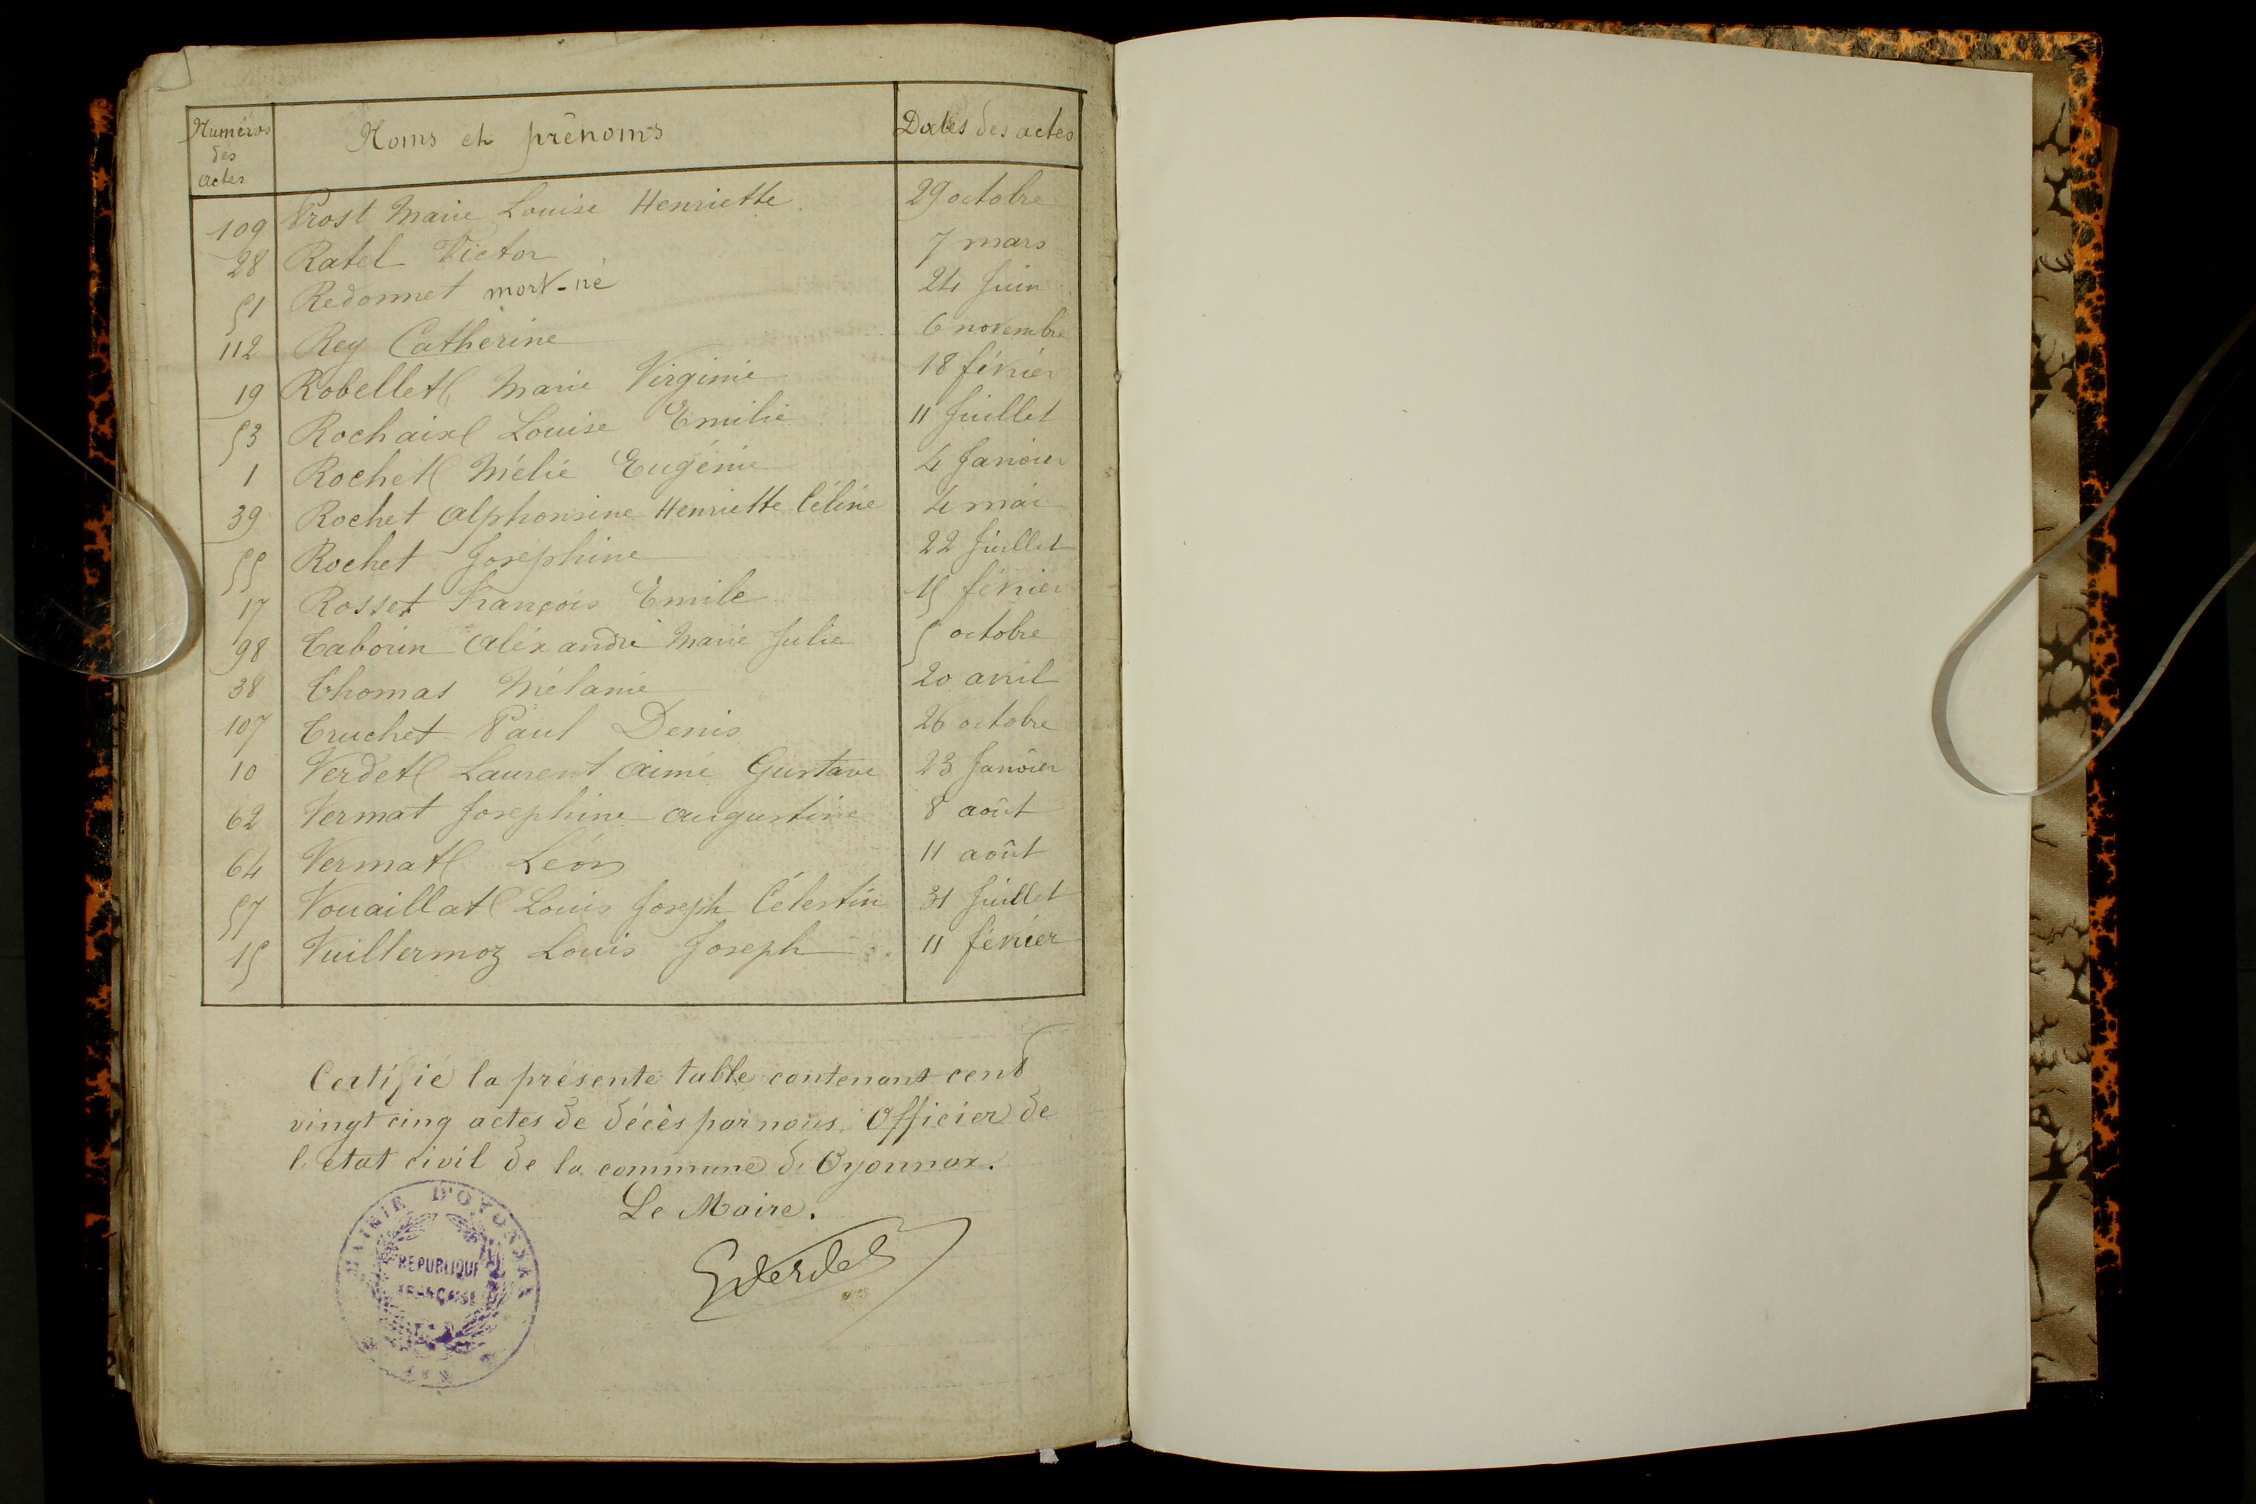 Numéros des actes | Noms et prénoms | Dates des actes
109 Prost Marie Louise Henriette 29 octobre
28 Ratel Victor 7 mars
51 Redonnet mort-né 24 Juin
112 Rey Catherine 6 novembre
19 Robellet Marie Virginie 18 février
53 Rochaix Louise Emilie 11 Juillet
1 Rochet Mélie Eugénie 4 Janvier
39 Rochet Alphonsine Henriette Céline 4 mai
55 Rochet Joséphine 22 Juillet
17 Rosset François Emile 15 février
98 Tabouin Aléxandre Marie Julie 5 octobre
38 Thomas Mélanie 20 avril
107 Truchet Paul Denis 26 octobre
10 Verdet Laurent Aimé Gustave 23 Janvier
62 Vermat Joséphine Augustine 8 août
64 Vermat Léon 11 août
57 Vouaillat Louis Joseph Célestin 31 Juillet
15 Vuillermoz Louis Joseph 11 février
Certifié la présente table contenant cent
vingt cinq actes de décès par nous Officier de
l'etat civil de la commune d'Oyonnax.
Le Maire.
GVerdet
MAIRIE D'OYONNAX
RÉPUBLIQUE
FRANÇAISE